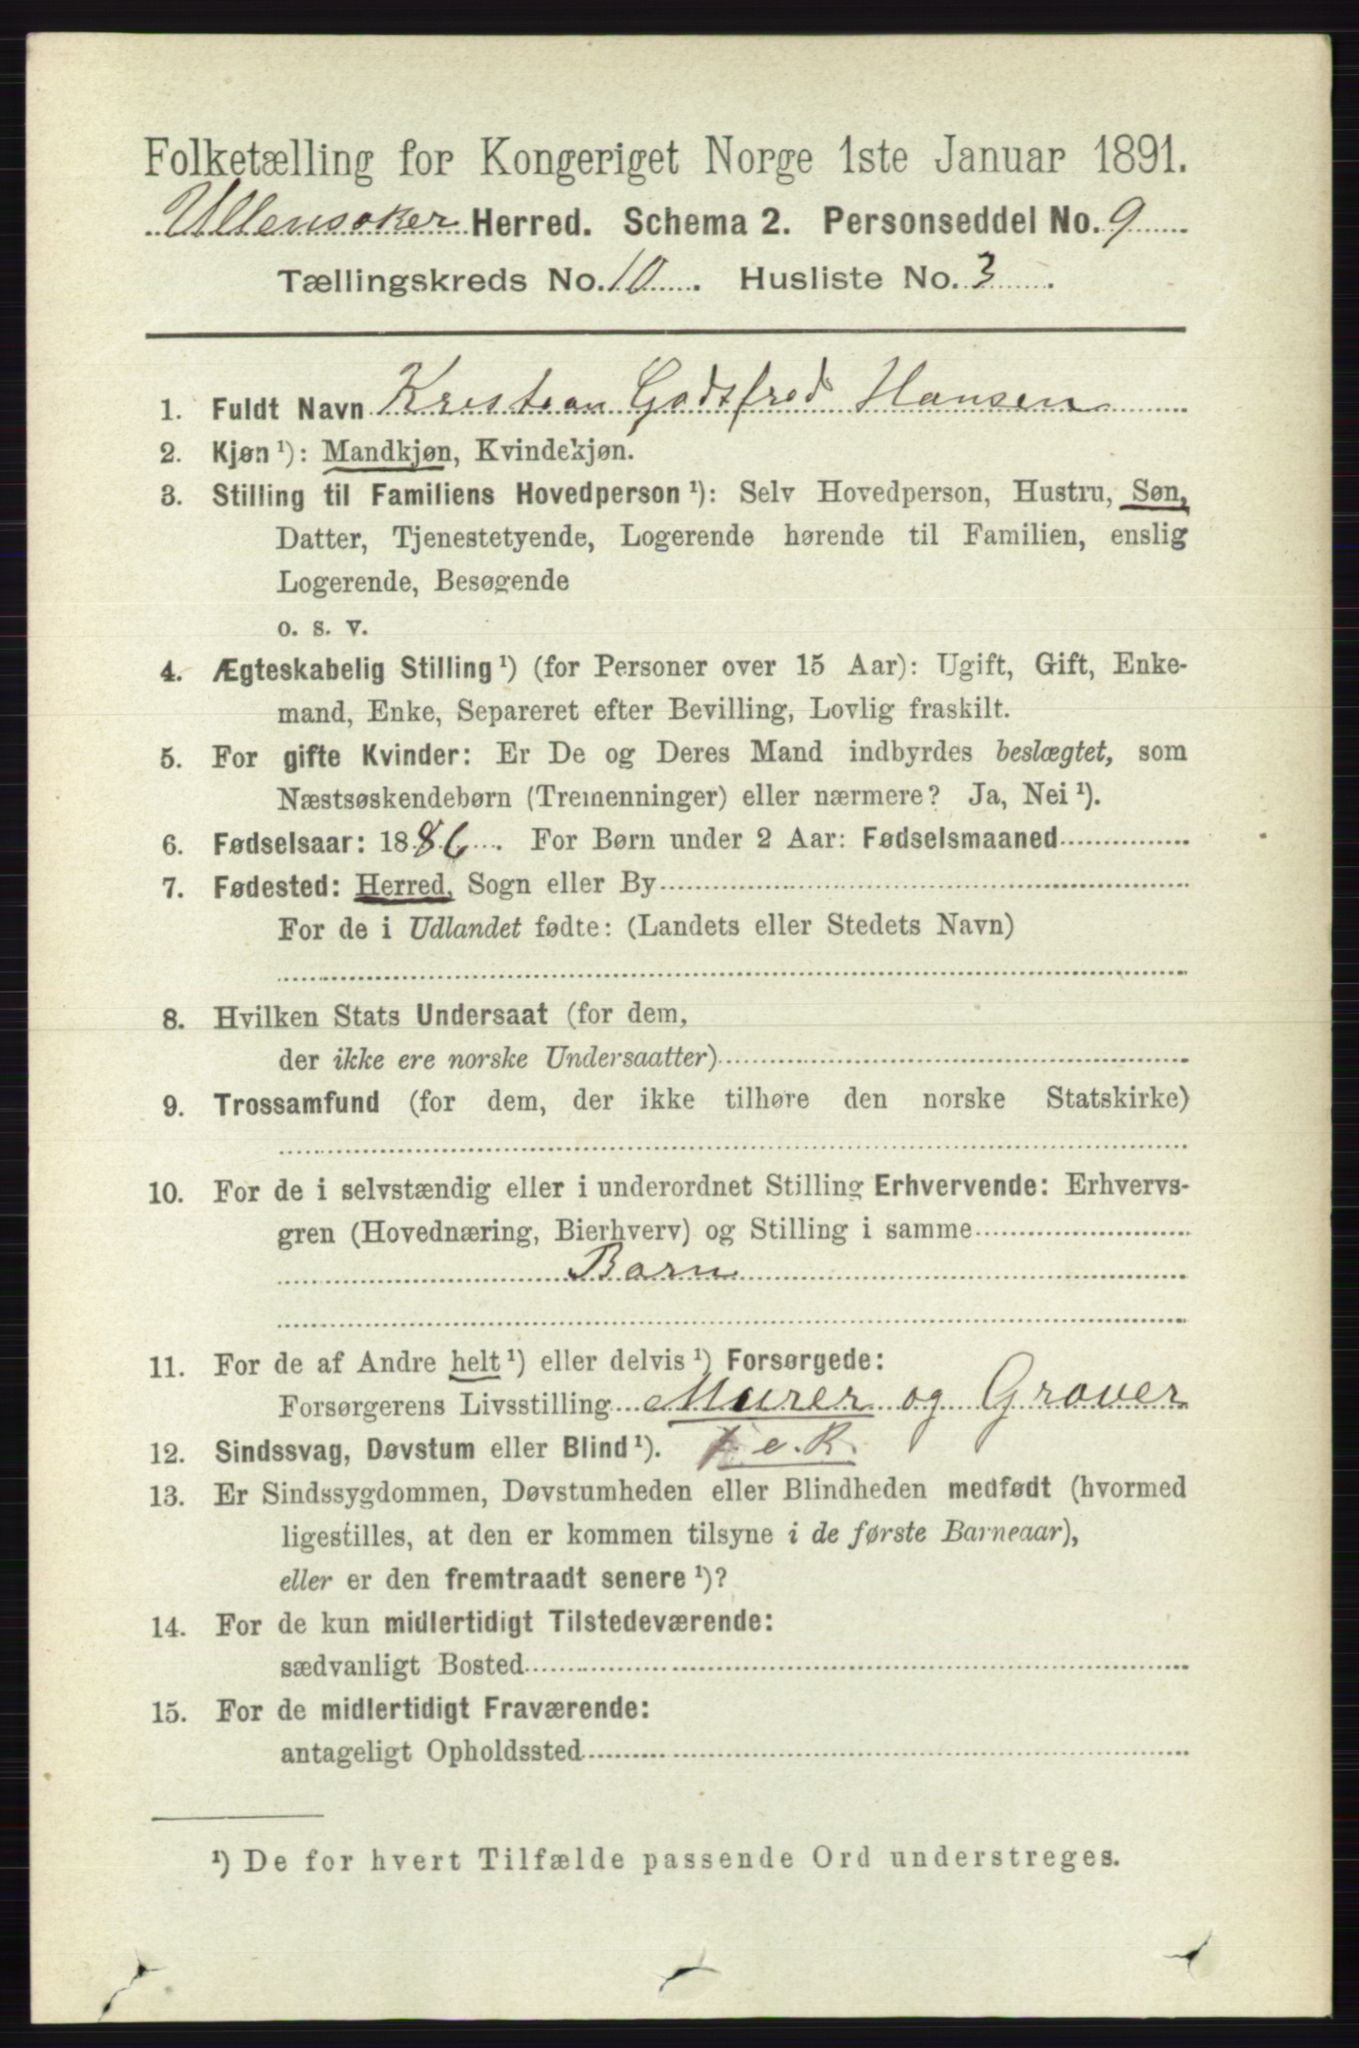 Folketælling for Kongeriget Norge 1ste Januar 1891.
Ullensaker Herred. Schema 2. Personseddel No. 9
Tællingskreds No. 10. Husliste No. 3.
1. Fuldt Navn Kristian Godtfred Hansen
2. Kjøn ¹): Mandkjøn, Kvindekjøn.
3. Stilling til Familiens Hovedperson ¹): Selv Hovedperson, Hustru, Søn,
Datter, Tjenestetyende, Logerende hørende til Familien, enslig
Logerende, Besøgende
o. s. v.
4. Ægteskabelig Stilling ¹) (for Personer over 15 Aar): Ugift, Gift, Enke-
mand, Enke, Separeret efter Bevilling, Lovlig fraskilt.
5. For gifte Kvinder: Er De og Deres Mand indbyrdes beslægtet, som
Næstsøskendebørn (Tremenninger) eller nærmere? Ja, Nei ¹).
6. Fødselsaar: 1886. For Børn under 2 Aar: Fødselsmaaned
7. Fødested: Herred, Sogn eller By
For de i Udlandet fødte: (Landets eller Stedets Navn)
8. Hvilken Stats Undersaat (for dem,
der ikke ere norske Undersaatter)
9. Trossamfund (for dem, der ikke tilhøre den norske Statskirke)
10. For de i selvstændig eller i underordnet Stilling Erhvervende: Erhvervs-
gren (Hovednæring, Bierhverv) og Stilling i samme
Barn
11. For de af Andre helt ¹) eller delvis ¹) Forsørgede:
Forsørgerens Livsstilling Murer og Graver
12. Sindssvag, Døvstum eller Blind ¹). e. R.
13. Er Sindssygdommen, Døvstumheden eller Blindheden medfødt (hvormed
ligestilles, at den er kommen tilsyne i de første Barneaar),
eller er den fremtraadt senere ¹)?
14. For de kun midlertidigt Tilstedeværende:
sædvanligt Bosted
15. For de midlertidigt Fraværende:
antageligt Opholdssted
¹) De for hvert Tilfælde passende Ord understreges.